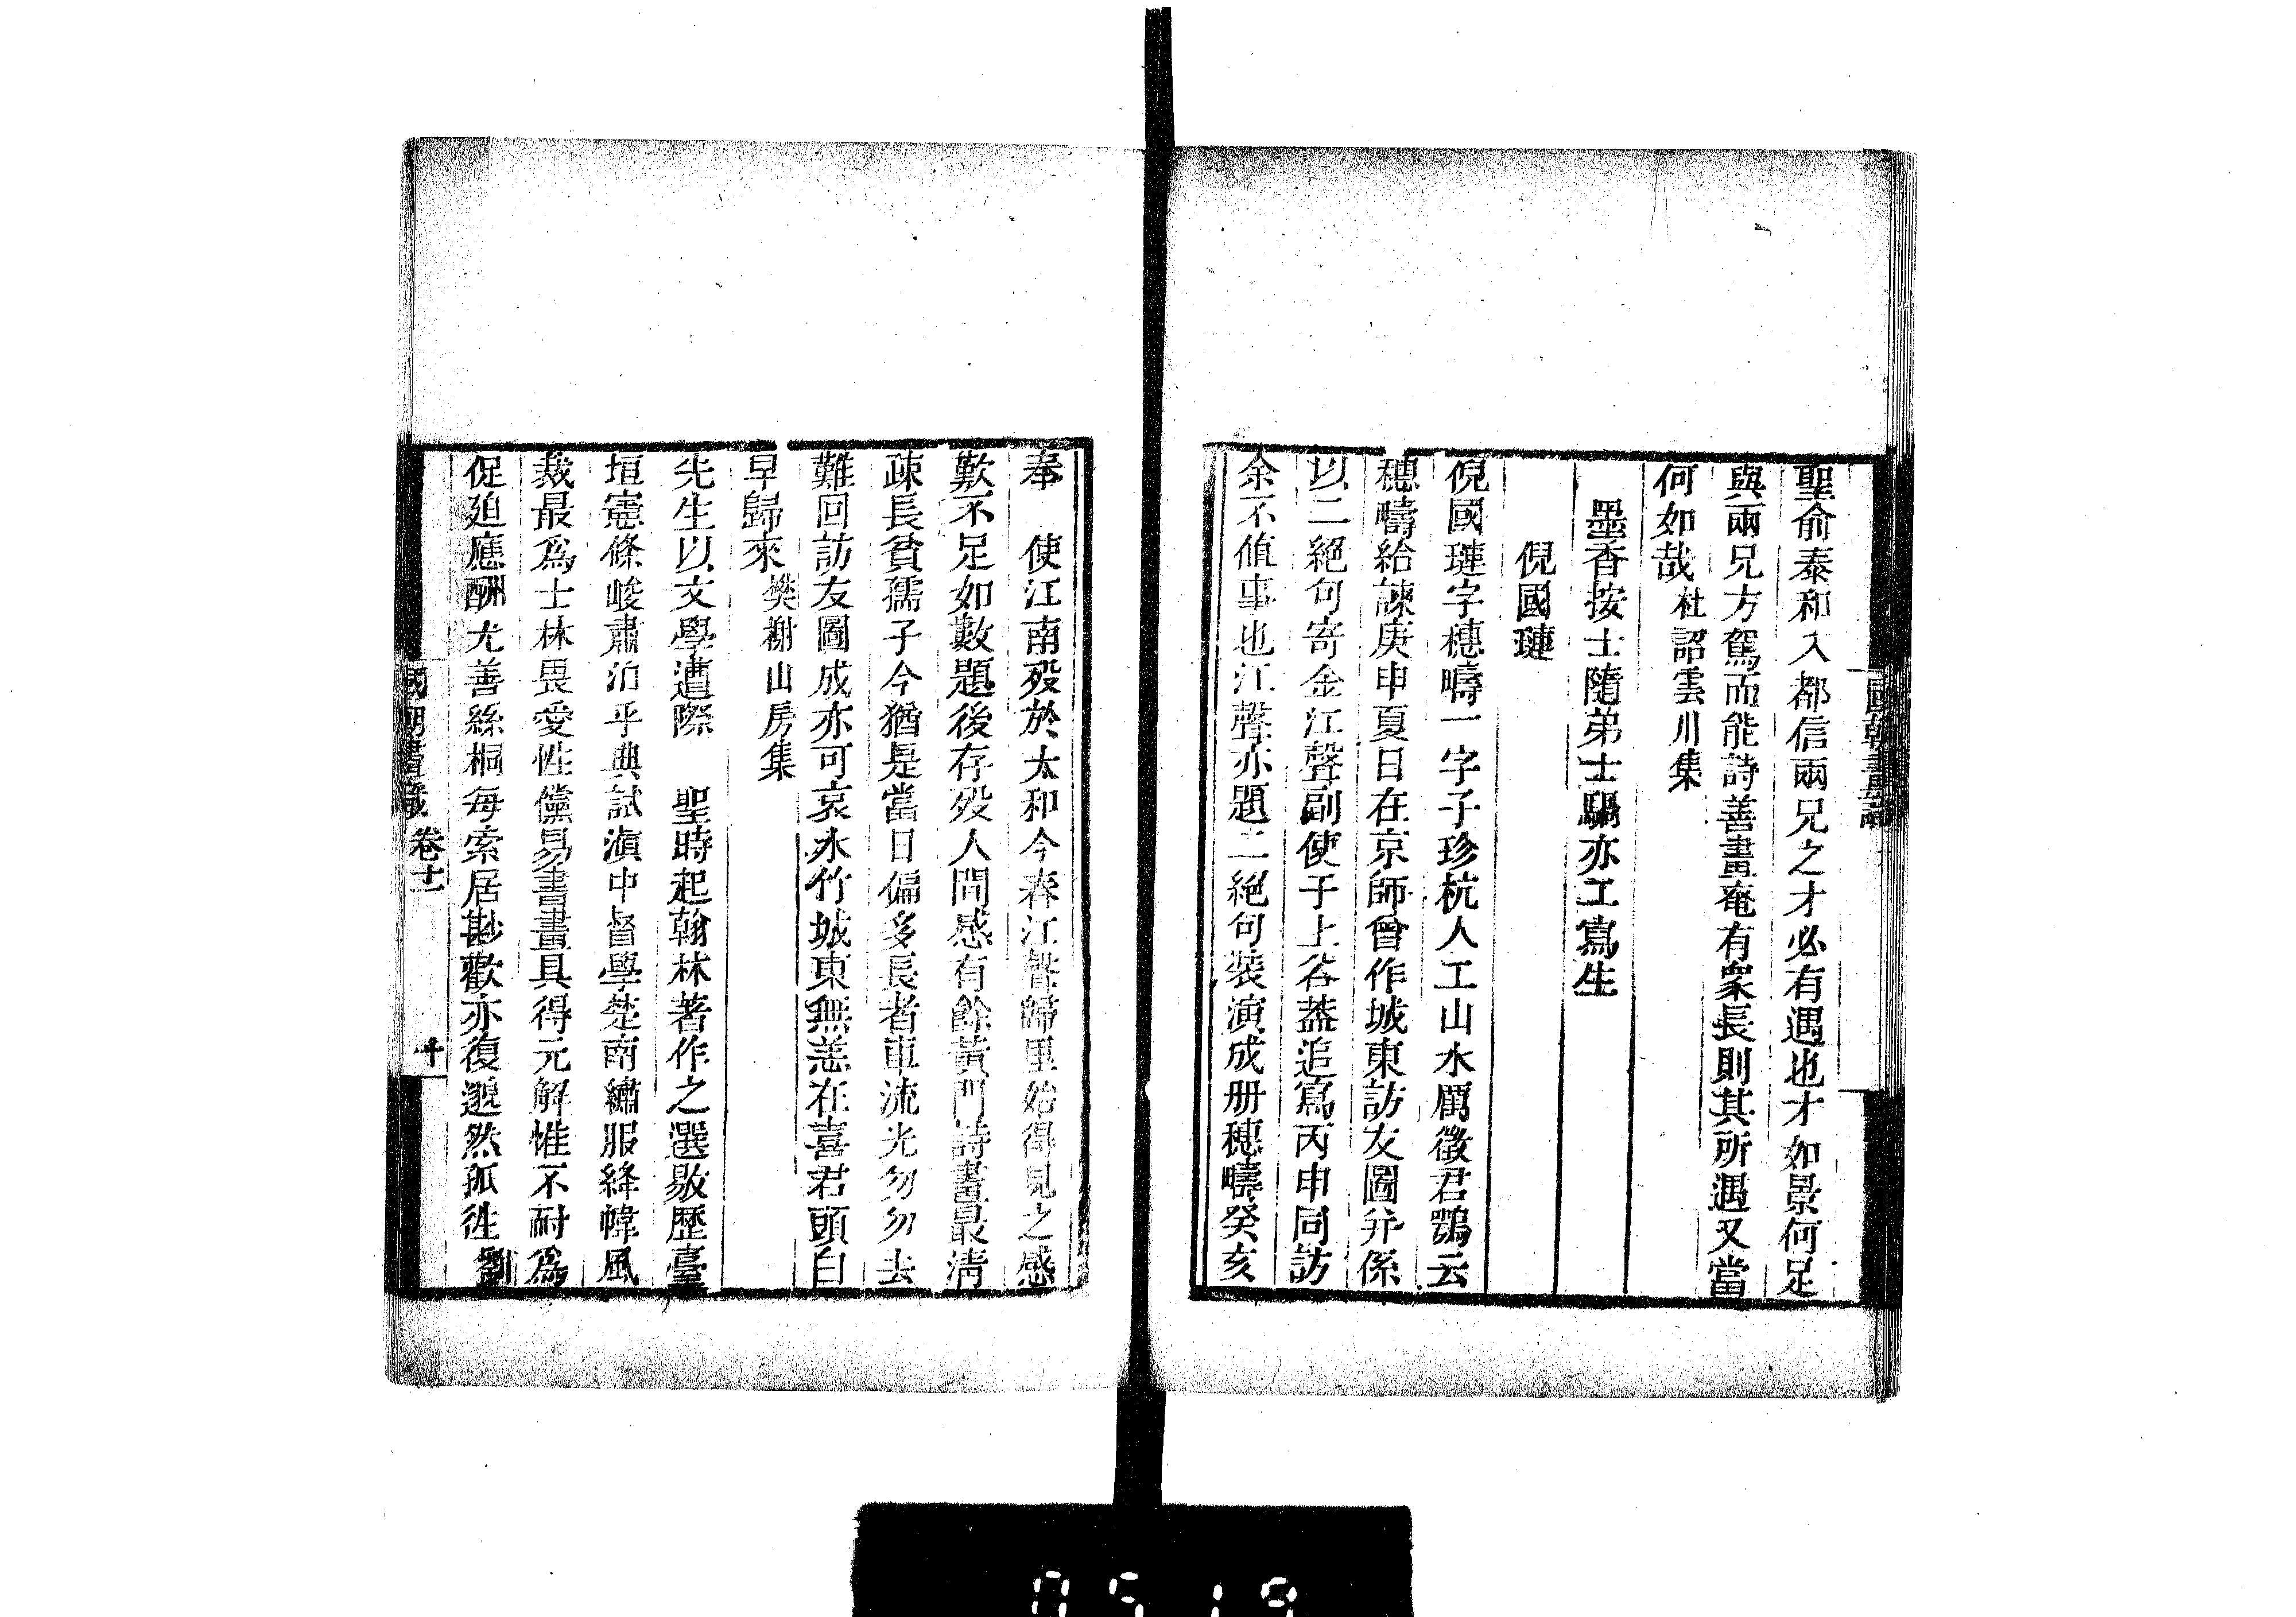 聖俞泰和入都信兩兄之才必有遇也才如景何足
與兩兄方駕而能詩善畫奄有衆長則其所遇又當
何如哉 杜詔雲川集
墨香按士隨弟士驑亦工寫生
倪國璉
倪國璉字穗疇一字子珍杭人工山水厲徵君鶚云
穗疇給諫庚申夏日在京師曾作城東訪友圖并係
以二絕句寄金江聲副使于上谷葢追寫丙申同訪
余不値事也江聲亦題二絕句裝演成册穗疇癸亥
奉　使江南殁於太和今春江聲歸里始得見之感
歎不足如數題後存殁人間感有餘黃門詩畫最清
疎長貧孺子今猶是當日偏多長者車流光勿勿去
難回訪友圖成亦可哀水竹城東無恙在喜君頭白
早歸來 樊榭山房集
先生以文學遭際　聖時起翰林著作之選敭歷臺
垣憲條峻肅洎乎典試滇中督學楚南繡服絳幃風
裁最爲士林畏愛性儻易書畫具得元解惟不耐爲
促廹應酬尤善絲桐每索居尠歡亦復邈然孤徃 劉
國朝畫識 卷十一 十